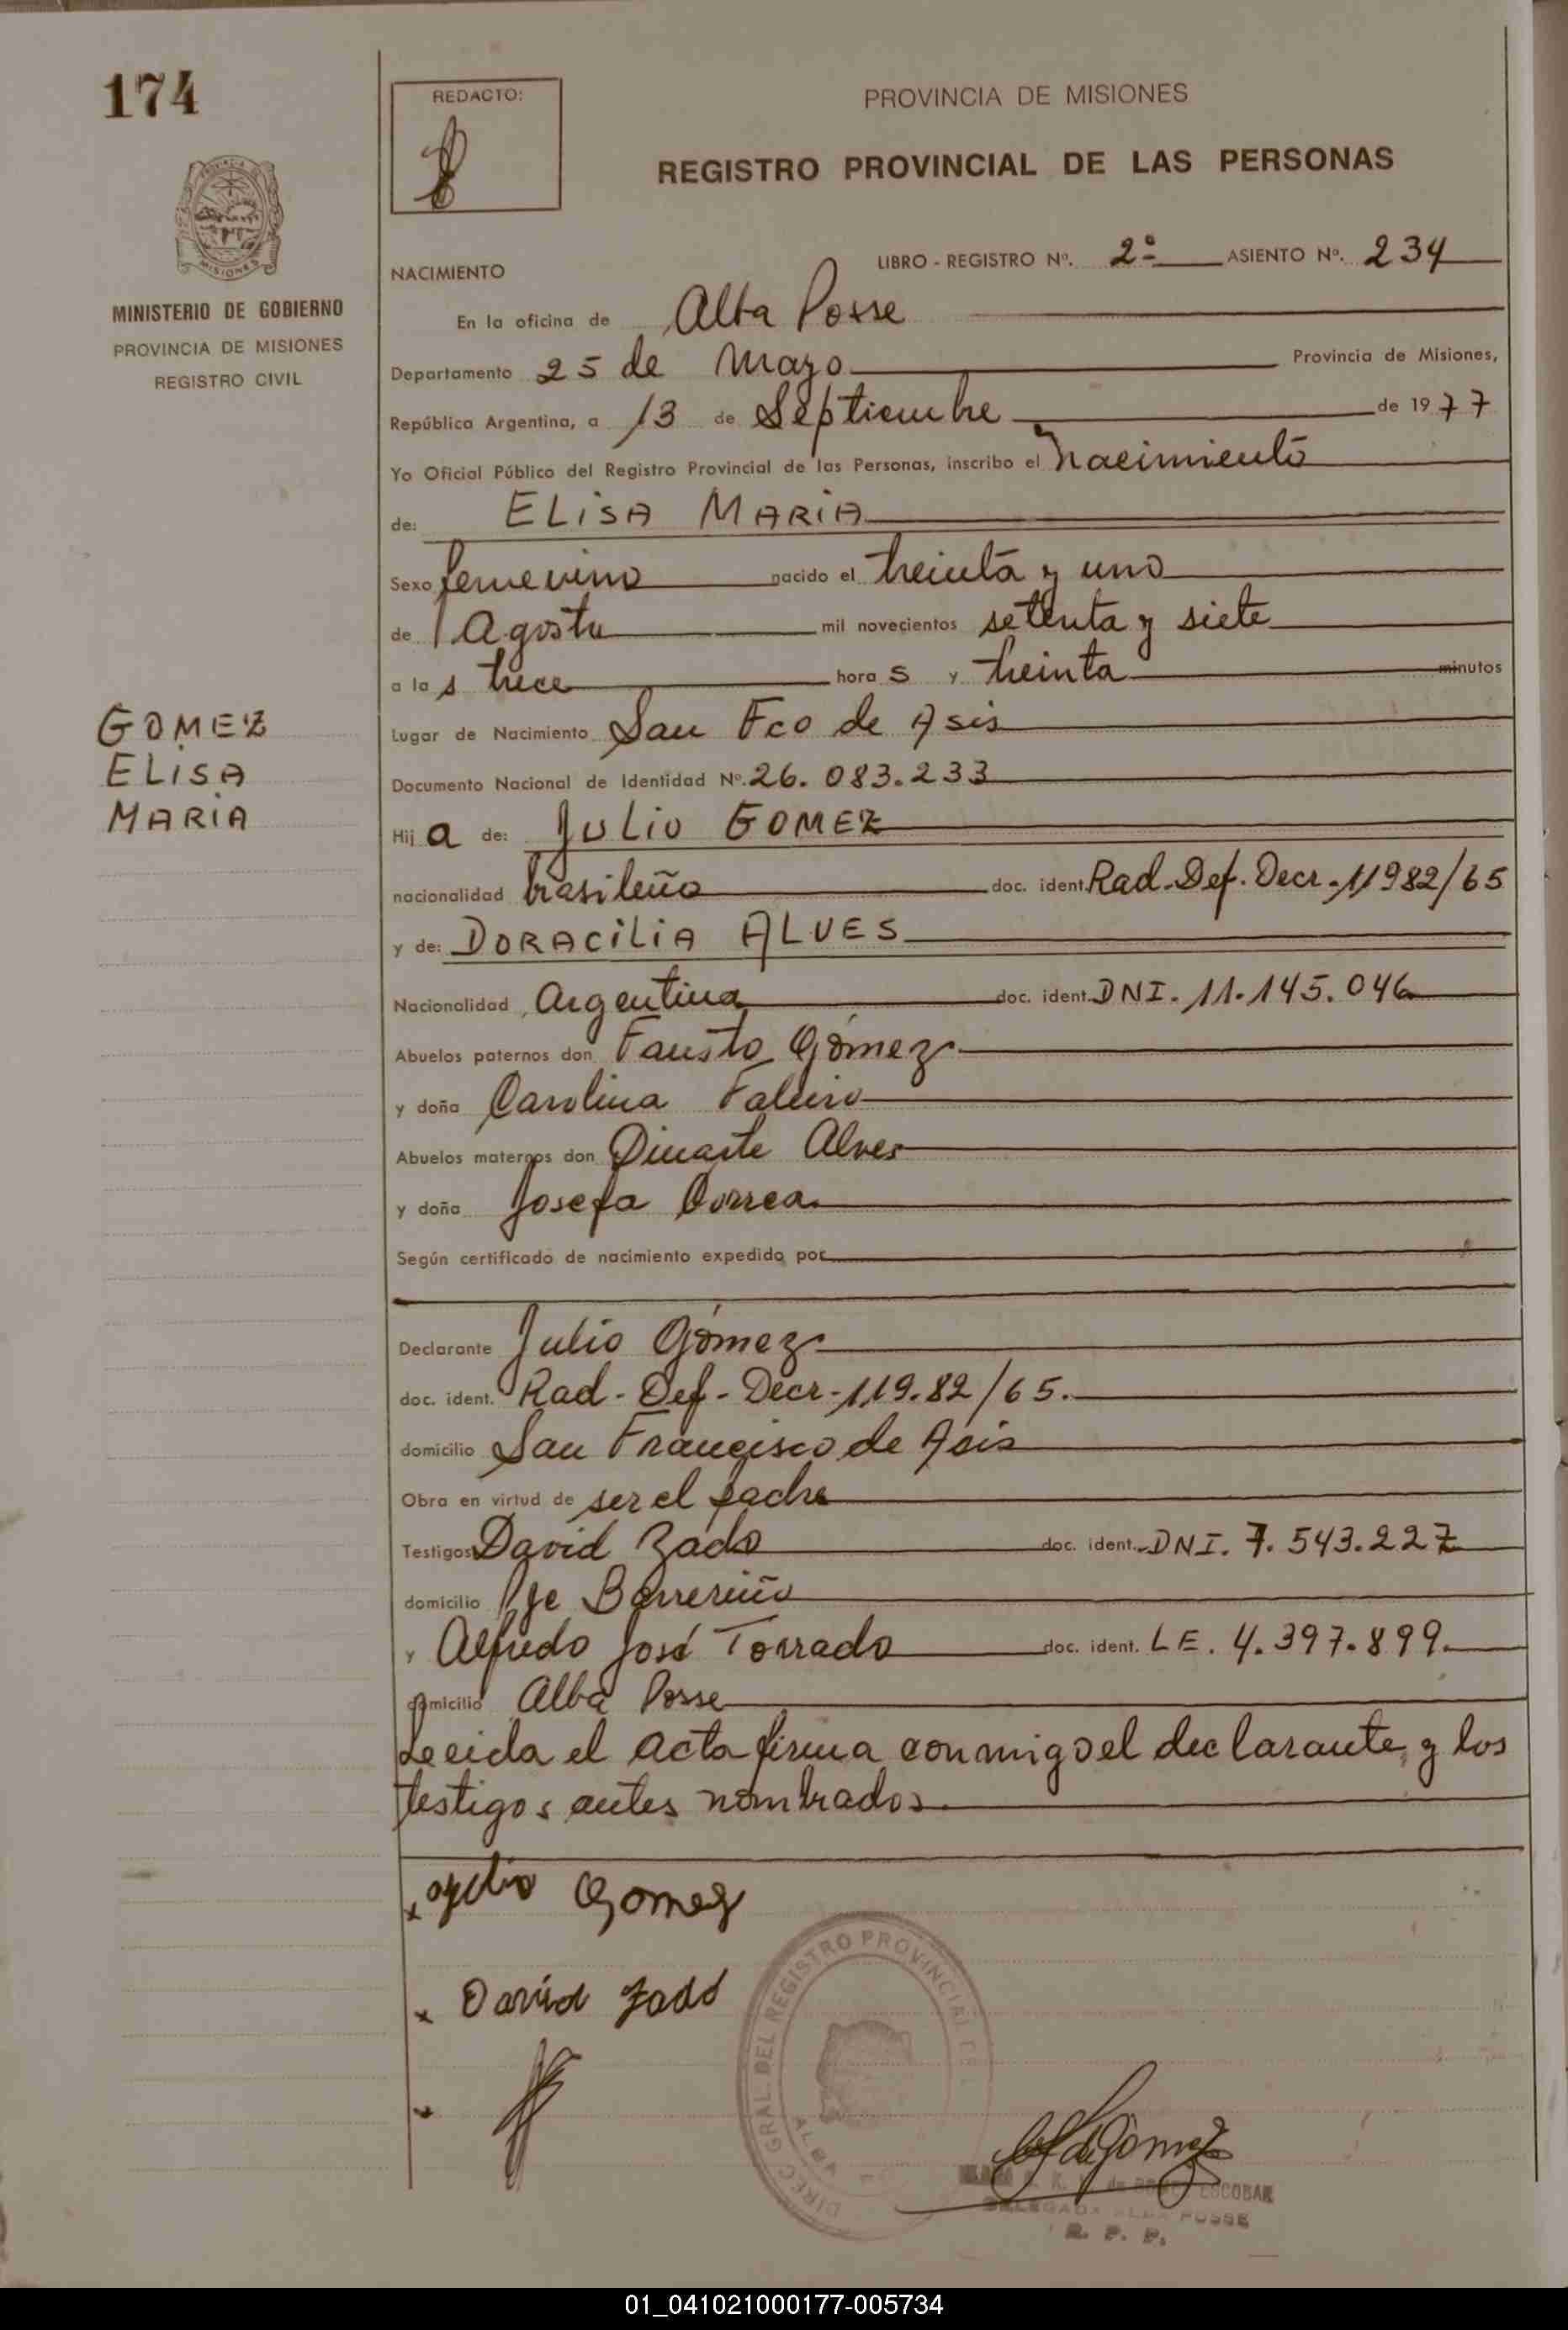 174
REDACTO:
PROVINCIA DE MISIONES
REGISTRO PROVINCIAL DE LAS PERSONAS
PROVINCIA
MISIONES
MINISTERIO DE GOBIERNO
PROVINCIA DE MISIONES
REGISTRO CIVIL
NACIMIENTO
LIBRO - REGISTRO Nº. 2º ASIENTO Nº. 234
En la oficina de Alba Posse
Departamento 25 de Mayo Provincia de Misiones,
República Argentina, a 13 de Septiembre de 1977
Yo Oficial Público del Registro Provincial de las Personas, inscribo el nacimiento
de: ELISA MARIA
Sexo femenino nacido el treinta y uno
de Agosto mil novecientos setenta y siete
a las trece horas y treinta minutos
GOMEZ
ELISA
MARIA
Lugar de Nacimiento San Fco de Asis
Documento Nacional de Identidad Nº. 26.083.233
Hija de: JULIO GOMEZ
nacionalidad brasileña doc. ident. Rad-Def. Decr-11982/65
y de: DORACILIA ALVES
Nacionalidad Argentina doc. ident. DNI. 11.145.046
Abuelos paternos don Fausto Gómez
y doña Carolina Faleiro
Abuelos maternos don Dinarte Alves
y doña Josefa Correa
Según certificado de nacimiento expedido por
Declarante Julio Gómez
doc. ident. Rad-Def-Decr-119.82/65.
domicilio San Francisco de Asis
Obra en virtud de ser el padre
Testigos David Zado doc. ident. DNI. 7.543.227
domicilio Pje Barrerito
y Alfredo José Torrado doc. ident. LE. 4.397.899
domicilio Alba Posse
Leeida el acta firma conmigo el declarante y los
testigos antes nombrados.
x Gomez
x David Zado
DIREC. GRAL. DEL REGISTRO PROVINCIAL DE
ALBA
de Gómez
ESCOBAR
DELEGADA ALBA POSSE
R. P. P.
01_041021000177-005734